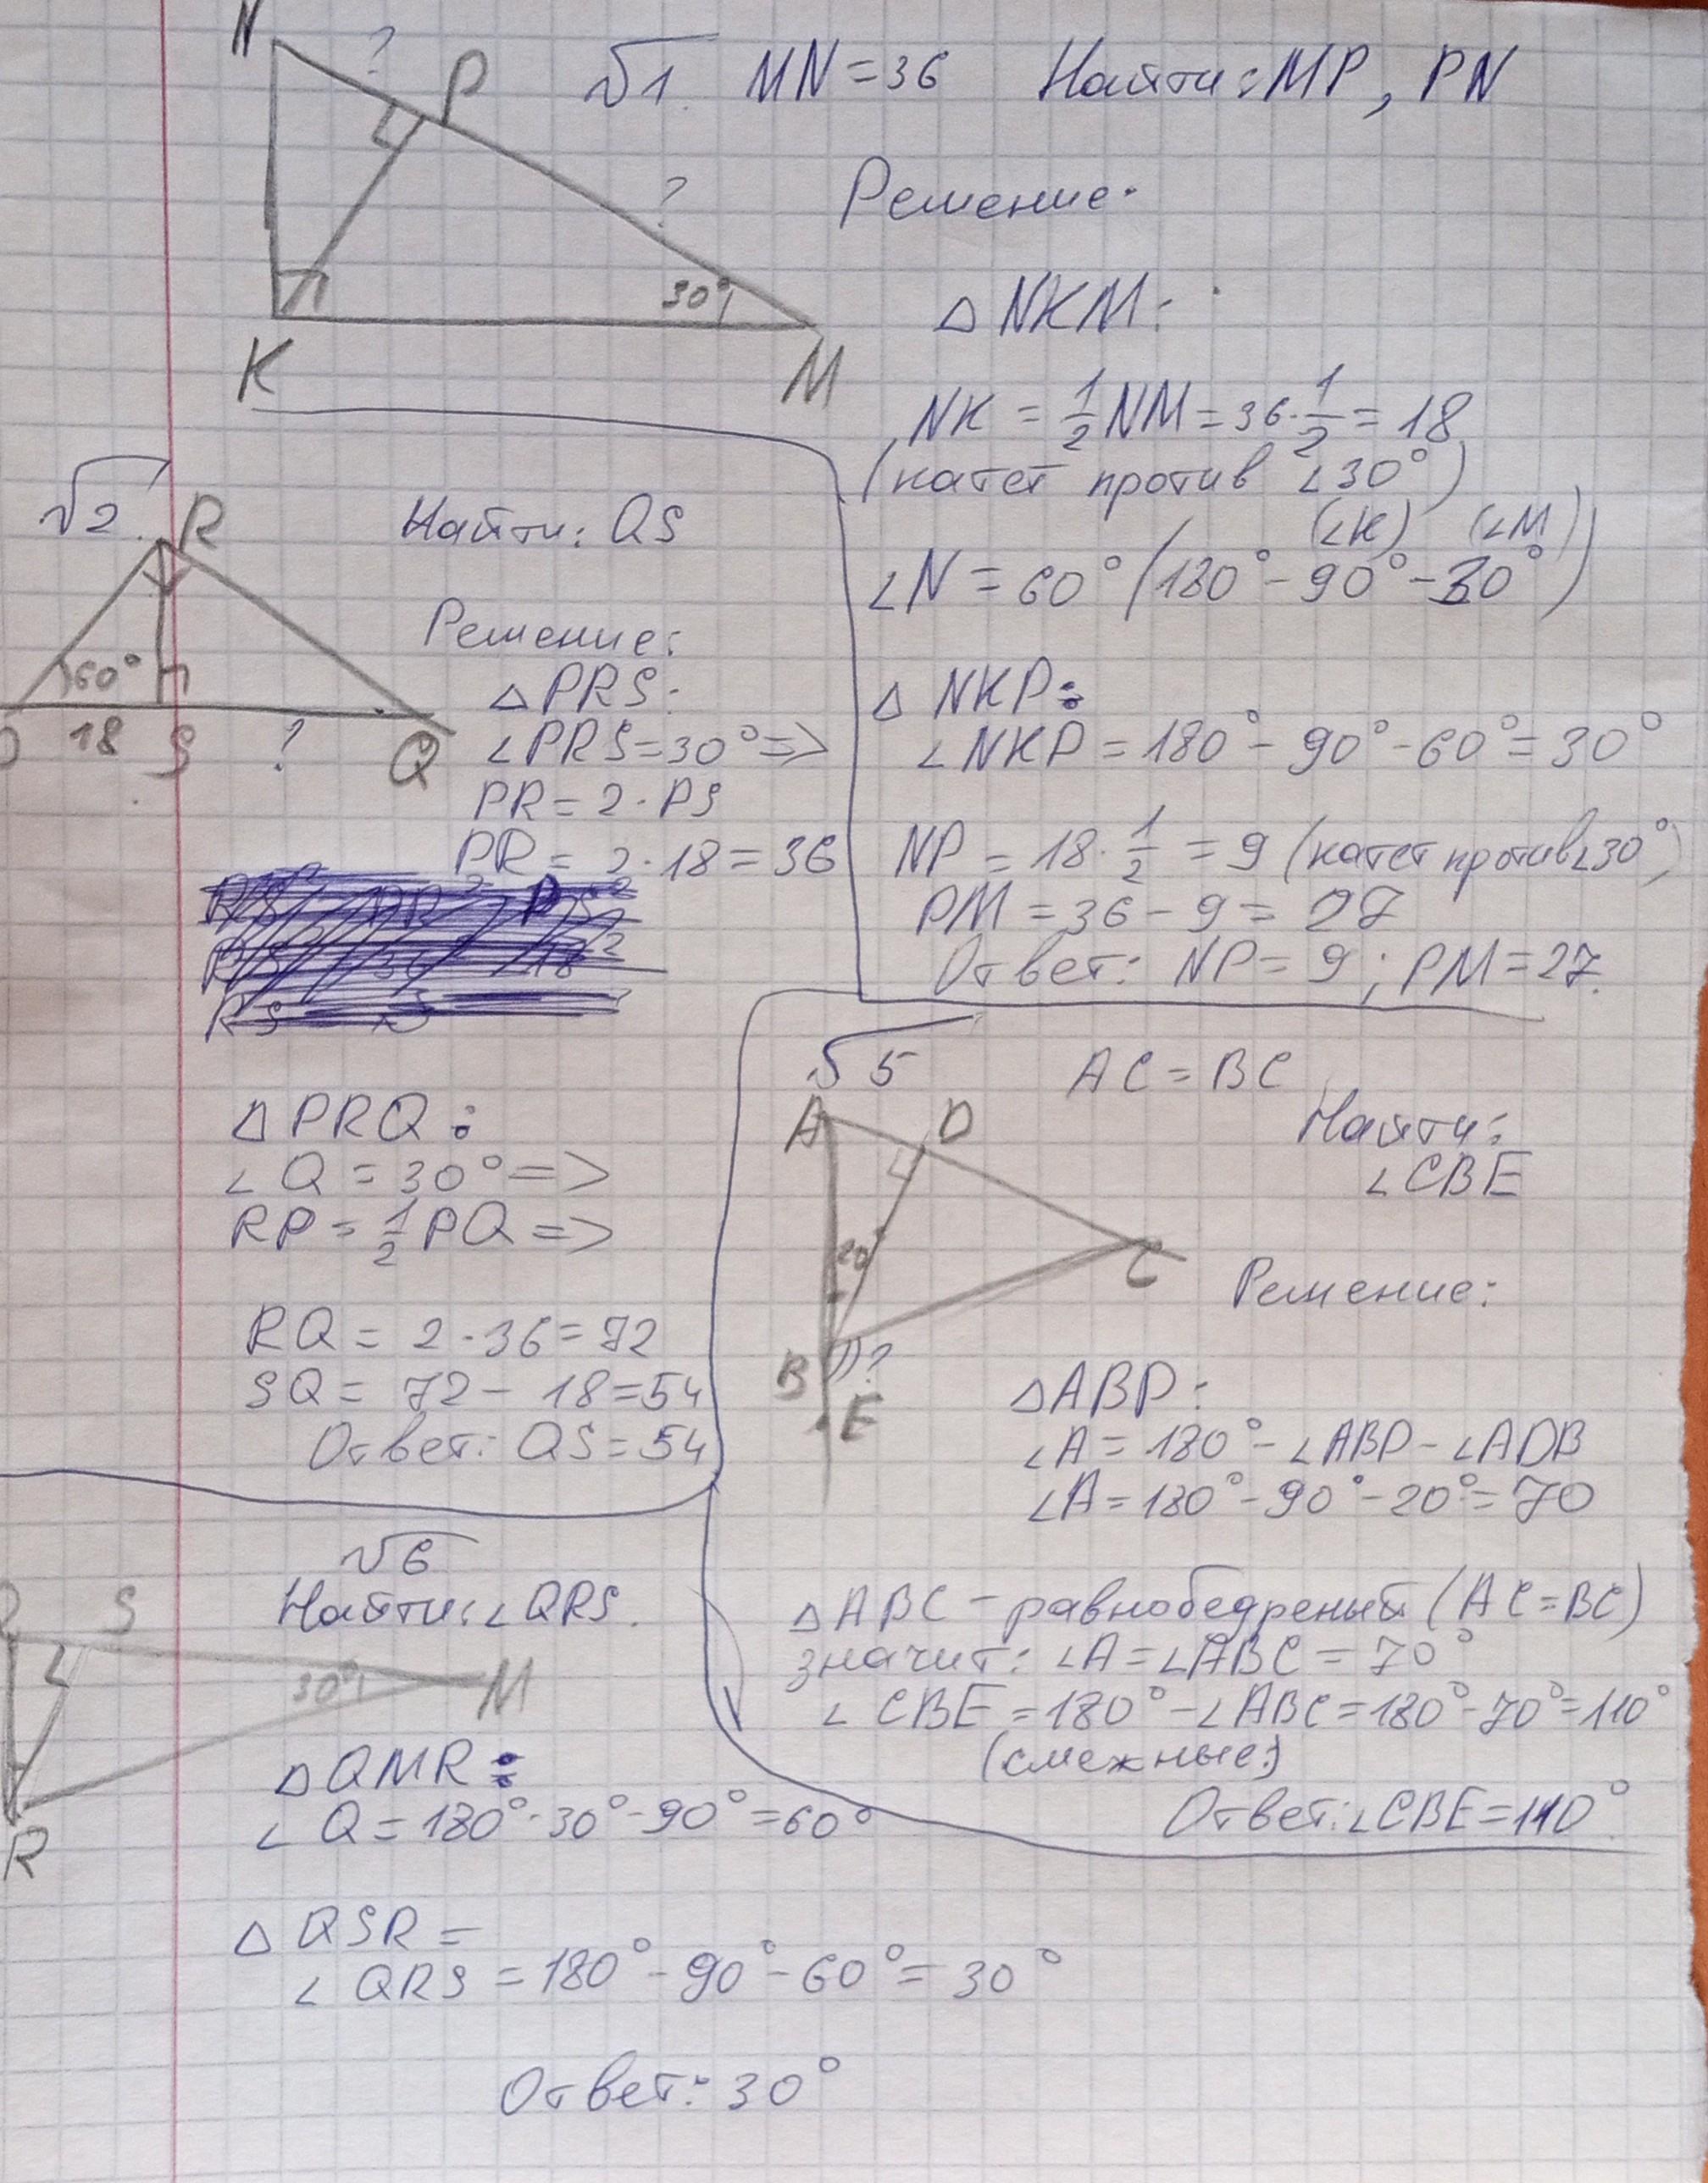 N ? P √1. MN = 36 Найти: MP, PN
?
Решение.
30°
K M
△ NKM:
NK = 1/2 NM = 36 · 1/2 = 18
(катет против ∠30°)
(∠K) (∠M)
∠N = 60° (180° - 90° - 30°)
△ NKP:
∠NKP = 180° - 90° - 60° = 30°
NP = 18 · 1/2 = 9 (катет против ∠30°)
PM = 36 - 9 = 27
Ответ: NP = 9; PM = 27.
√2. R Найти: QS
60°
18 S ? Q
Решение:
△ PRS:
∠PRS = 30° =>
PR = 2 · PS
PR = 2 · 18 = 36
△ PRQ:
∠Q = 30° =>
RP = 1/2 PQ =>
RQ = 2 · 36 = 72
SQ = 72 - 18 = 54
Ответ: QS = 54
√5 AC = BC
Найти:
∠CBE
A D
20°
C
B ?
E
Решение:
△ABD:
∠A = 180° - ∠ABD - ∠ADB
∠A = 180° - 90° - 20° = 70
△ABC - равнобедреный (AC = BC)
значит: ∠A = ∠ABC = 70°
∠CBE = 180° - ∠ABC = 180° - 70° = 110°
(смежные)
Ответ: ∠CBE = 110°
√6
Найти: ∠QRS.
S
30° M
R
△QMR:
∠Q = 180° - 30° - 90° = 60°
△ QSR =
∠QRS = 180° - 90° - 60° = 30°
Ответ: 30°